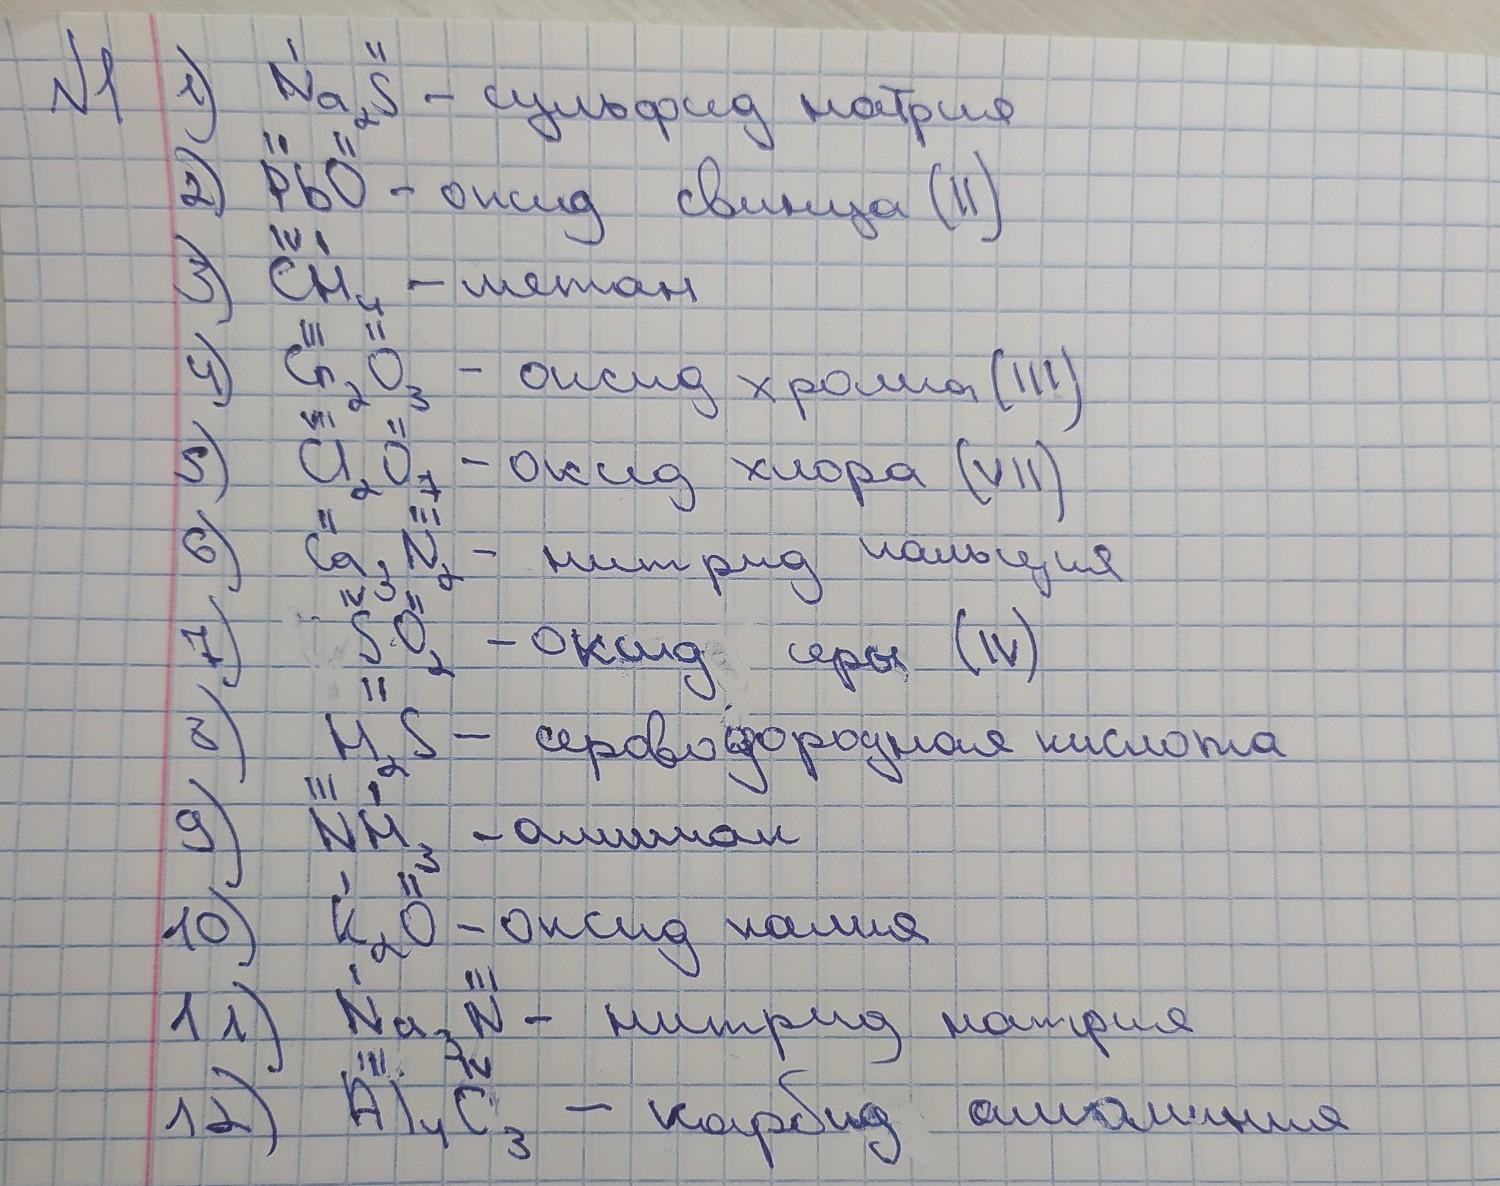 N1 1) Na₂S – сульфид натрия
2) PbO – оксид свинца (II)
3) CH₄ – метан
4) Cr₂O₃ – оксид хрома (III)
5) Cl₂O₇ – оксид хлора (VII)
6) Ca₃N₂ – нитрид кальция
7) SO₂ – оксид серы (IV)
8) H₂S – сероводородная кислота
9) NH₃ – аммиак
10) K₂O – оксид калия
11) Na₃N – нитрид натрия
12) Al₄C₃ – карбид алюминия